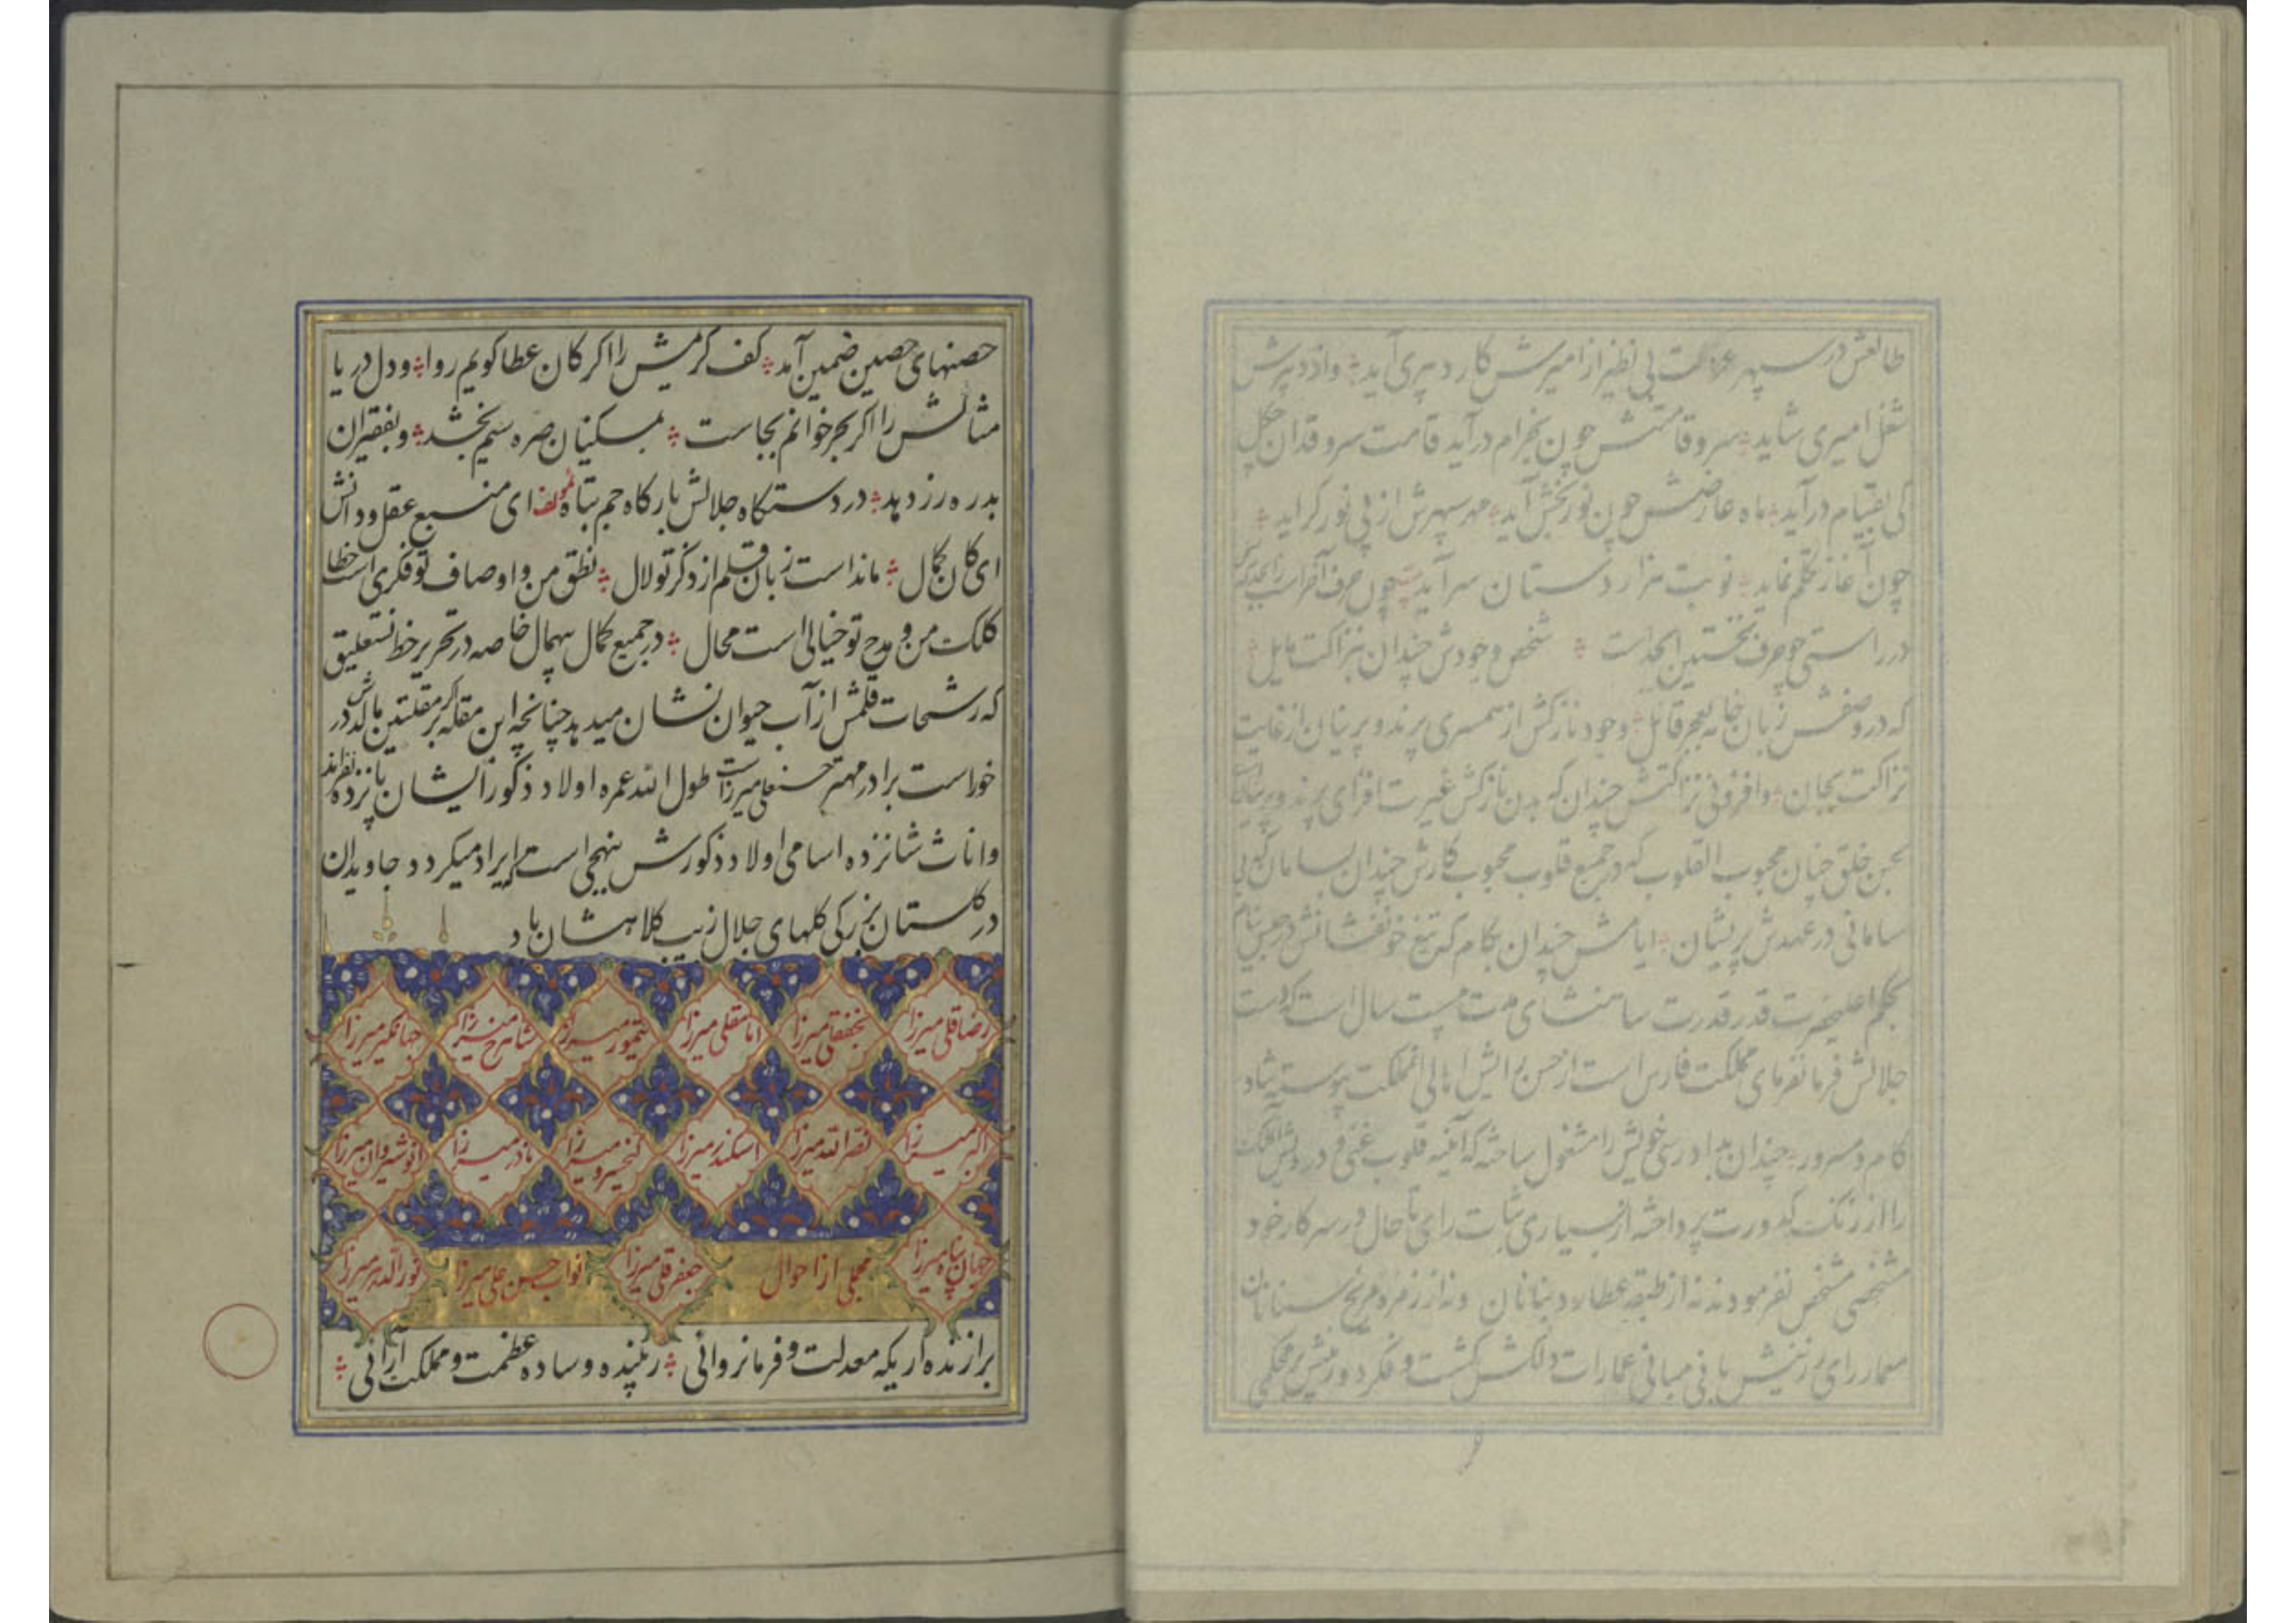 طالعش در سپهر عزت بی نظیر از امیرش کار دبیری آید واز دبیرش
شغل امیری شاید سرو قامتش چون بخرام درآید قامت سرو قدان چگل
کی بقیام درآید ماه عارضش چون نور بخش آید مهر سپهرش از پی نور کراید
چون آغاز تکلم نماید نوبت هزار دستان سرآید چون حرف آخر است
در راستی چو حرف نخستین ابجد است شخص وجودش چندان بنزاکت مایل
که در وصفش زبان خامه بعجز قائل وجود نازکش از همسری پرند و پرنیان از غایت
نزاکت بجان وافزونی نزاکتش چندان که بدن نازکش غیرت افزای پرند و پرنیان
بحسن خلق چنان محبوب القلوب که در جمیع قلوب محبوب کارش چندان بسامان که بی
سامانی در عهدش پریشان ایامش چندان بکام که تیغ خونفشانش در حبس نیام
بحکم اعلیحضرت قدر قدرت شاهنشاهی مدت بیست سال است که دست
جلالش فرمانفرمای مملکت فارس است از حسن برایش اهالی انمملکت پیوسته شاد
کام و مسرور چندان بدادرسی خویش را مشغول ساخته که آینه قلوب غنی و درویش
را از زنک کدورت پرداخته از بسیاری ثبات رای تا حال در سرکار خود
مشخصی مشخص نفرمودند نه از طبقه عطارد بنانان ونه از زمره مریخ سنانان
معمار رای رزینش بانی مبانی عمارات دلکش کشت و فکر دوربینش بر محکمی
حصنهای حصین ضمین آمد کف کرمیش را اکر کان عطا کویم روا ودل دریا
مثالش را اکر بحر خوانم بجاست بمسکینان صره سیم بخشد و بفقیران
بدره زر دهد در دستکاه جلالش بارکاه جم بتاه لمؤلفه ای منبع عقل و دانش
ای کان کمال مانداست زبان قلم از ذکر تو لال نطق من و اوصاف تو فکری است خطا
کلک من و مدح تو خیالی است محال در جمیع کمال بیهمال خاصه در تحریر خط نستعلیق
که رشحات قلمش از آب حیوان نشان میدهد چنانچه ابن مقله اکر بر مقلتین مالدش در
خوراست برادر مهتر حسنعلی میرزاست طول الله عمره اولاد ذکور ایشان پانزده نفراند
واناث شانزده اسامی اولاد ذکورش بنهجی است که ایراد میکردد جاویدان
در کلستان بزرکی کلهای جلال زیب کلاهشان باد
رضاقلی میرزا نجفقلی میرزا امامقلی میرزا تیمور میرزا شاهرخ میرزا جهانکیر میرزا
اکبر میرزا نصرالله میرزا اسکندر میرزا کیخسرو میرزا نادر میرزا انوشیروان میرزا
جهان پناه میرزا مجملی از احوال جعفرقلی میرزا نواب حسن علی میرزا نورالدهر میرزا
برازنده اریکه معدلت و فرمانروائی زیبنده وساده عظمت و مملکت آرائی